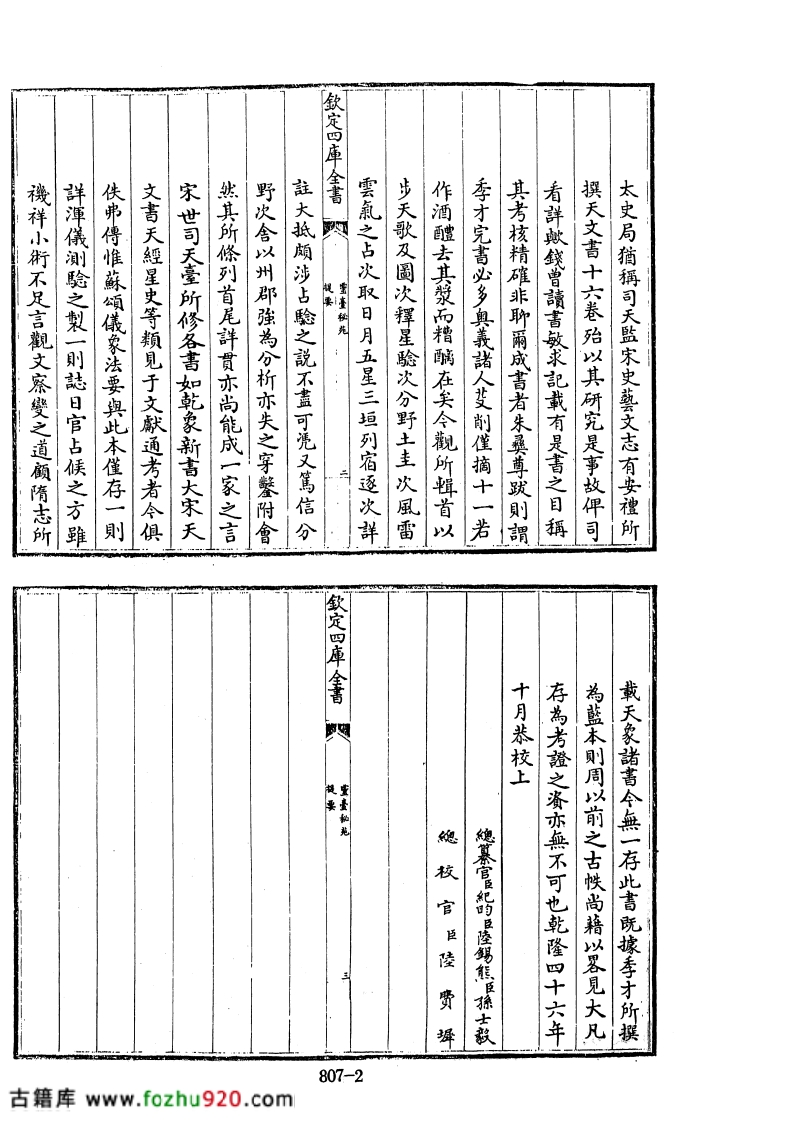 太史局猶稱司天監宋史藝文志有安禮所
撰天文書十六卷殆以其研究是事故俾司
看詳歟錢曾讀書敏求記載有是書之目稱
其考核精確非聊爾成書者朱彝尊跋則謂
季才完書必多奧義諸人芟削僅摘十一若
作酒醴去其漿而糟醨在矣今觀所輯首以
步天歌及圖次釋星驗次分野土圭次風雷
雲氣之占次取日月五星三垣列宿逐次詳
欽定四庫全書
靈臺秘苑
提要
二
註大抵頗涉占驗之説不盡可凴又篤信分
野次舍以州郡強為分析亦失之穿鑿附會
然其所條列首尾詳貫亦尚能成一家之言
宋世司天臺所修各書如乾象新書大宋天
文書天經星史等類見于文獻通考者今俱
佚弗傳惟蘇頌儀象法要與此本僅存一則
詳渾儀測驗之製一則誌日官占候之方雖
禨祥小術不足言觀文察變之道顧隋志所
載天象諸書今無一存此書既據季才所撰
為藍本則周以前之古帙尚藉以畧見大凡
存為考證之資亦無不可也乾隆四十六年
十月恭校上
總纂官臣紀昀臣陸錫熊臣孫士毅
總校官臣陸費墀
欽定四庫全書
靈臺秘苑
提要
三
807-2
古籍库 www.fozhu920.com